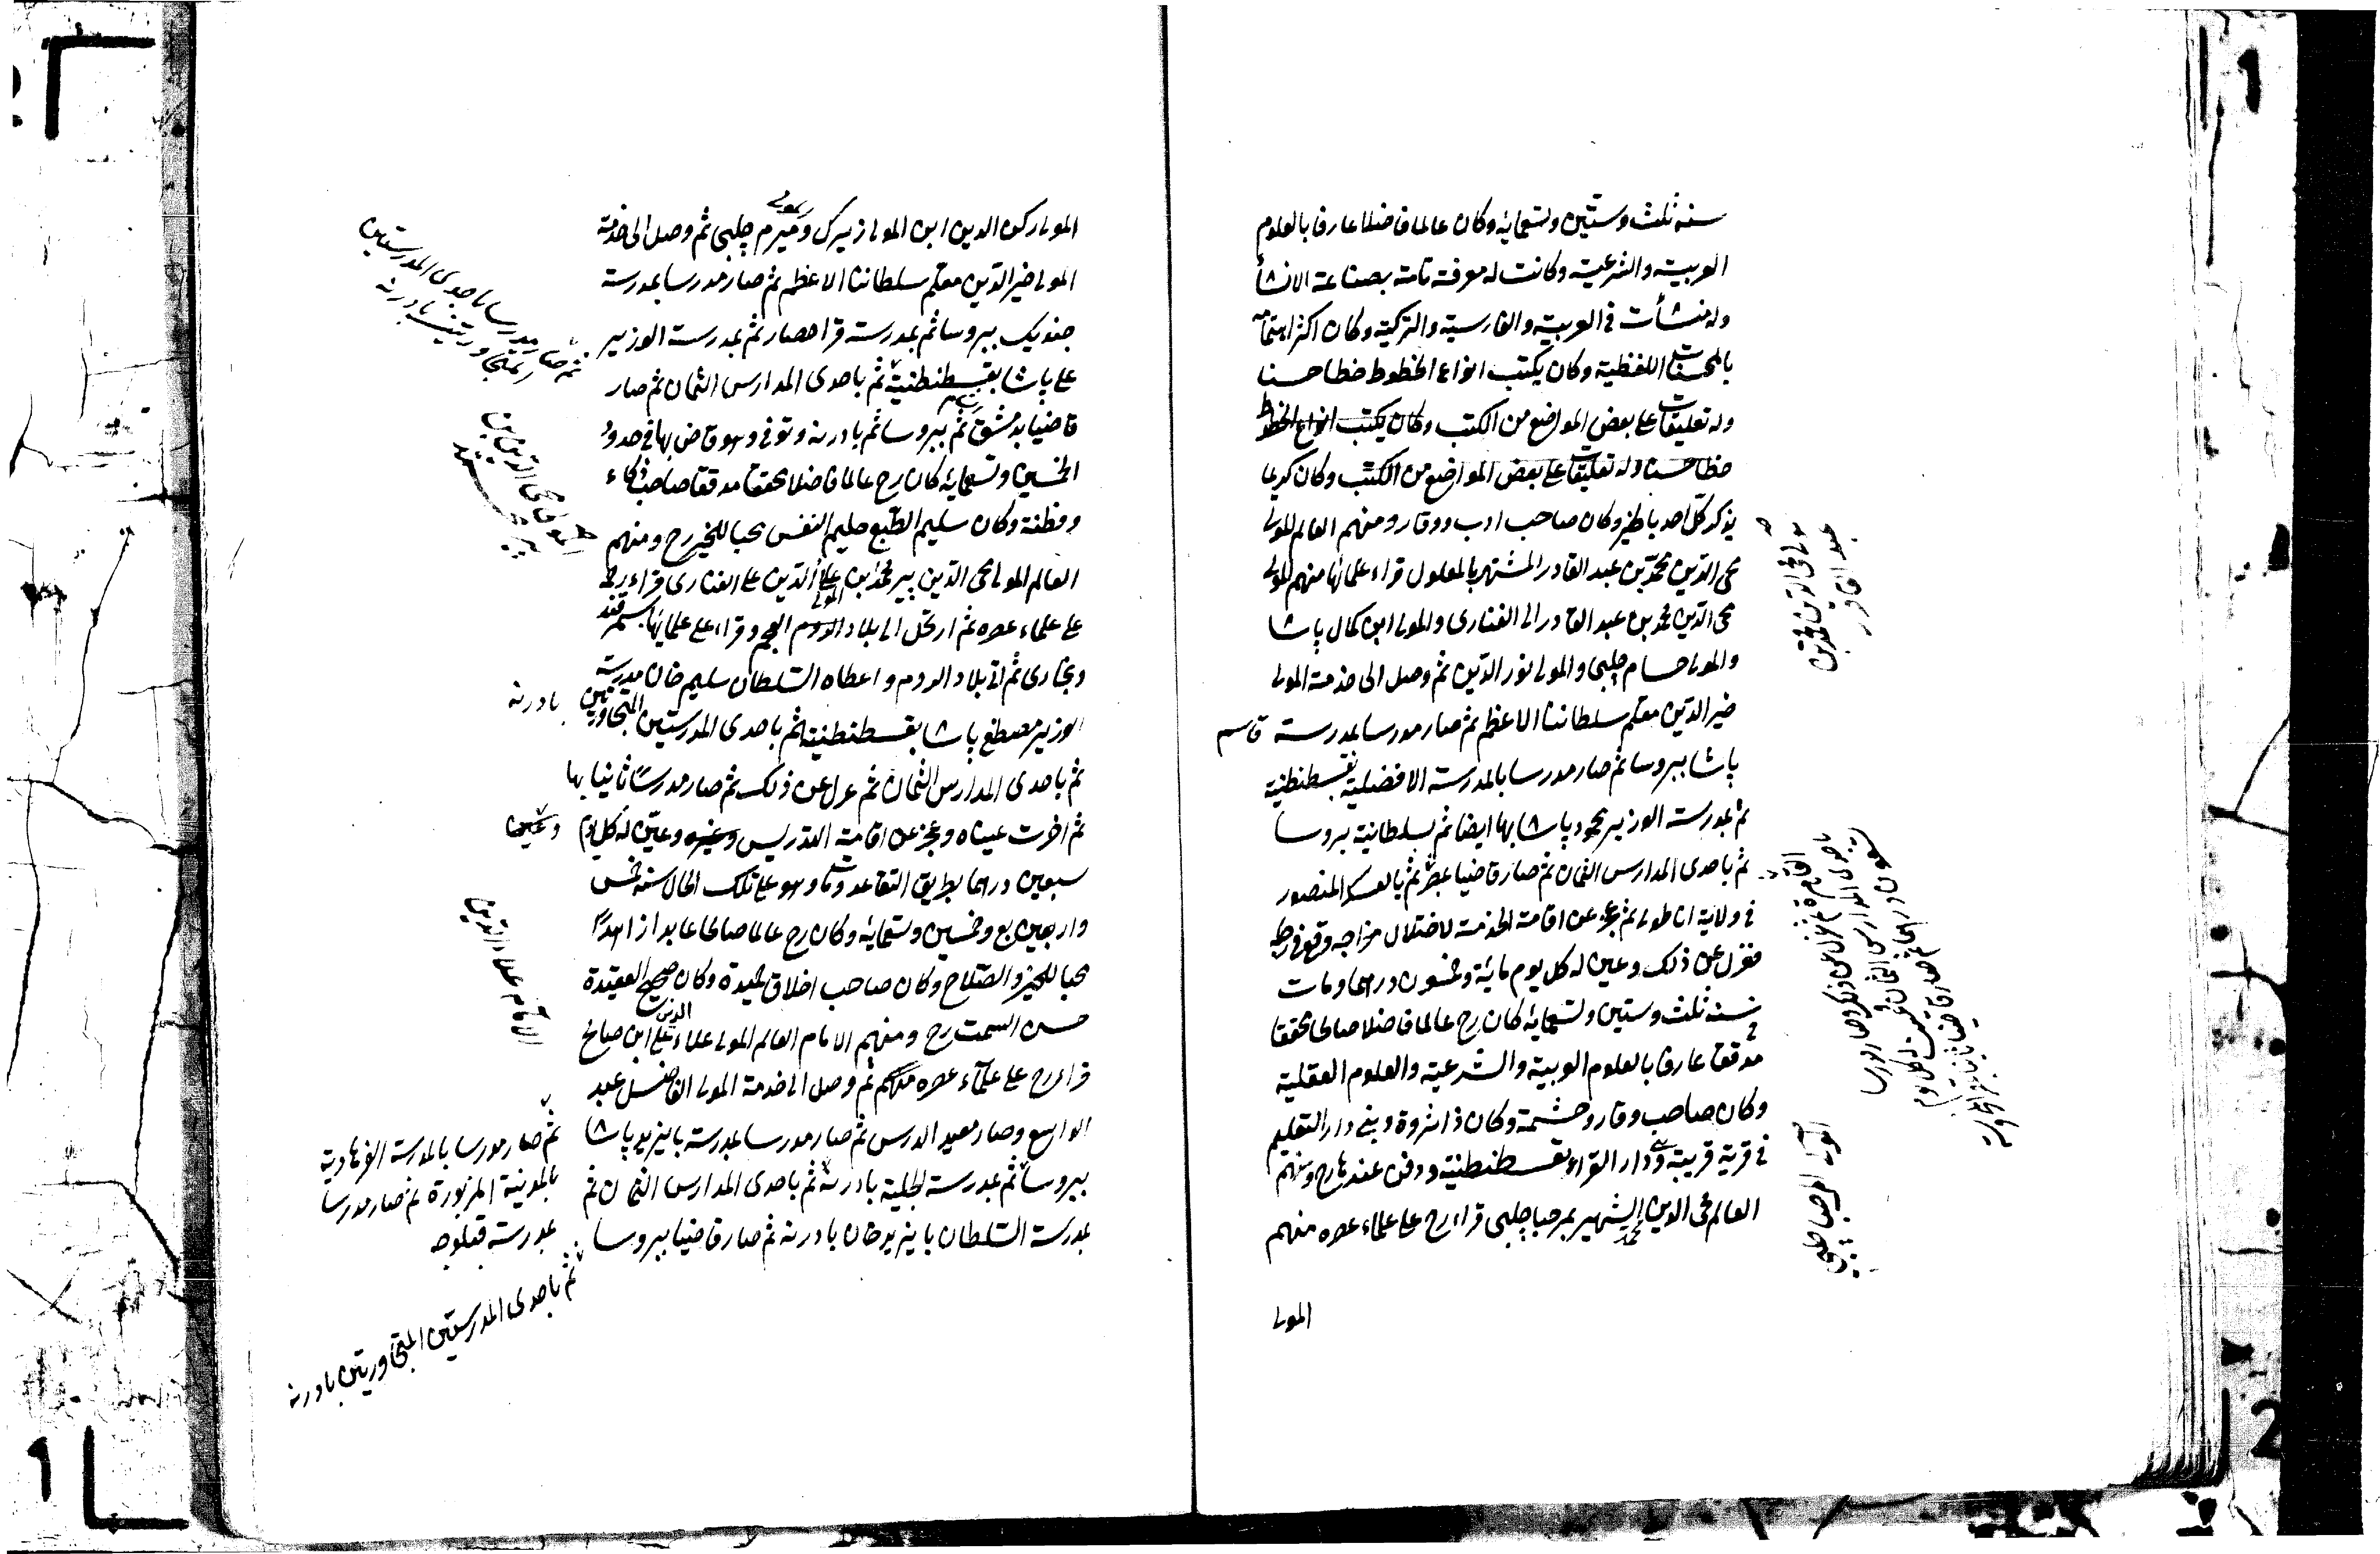 سنه ثلث وستين وتسعمايه وكان عالما فاضلا عارفا بالعلوم
العربية والشرعية وكانت له معرفة تامة بصناعة الانشأ
وله منشأت فى العربية والفارسية والتركية وكان اكثر اهتمامه
بالمحسنات اللفظية وكان يكتب انواع الخطوط خطا حسنا
وله تعليقات على بعض المواضع من الكتب وكان يكتب انواع الخطوط
خطا حسنا وله تعليقات على بعض المواضع من الكتب وكان كريما
يذكر كل احد بالخير وكان صاحب ادب ووقار ومنهم العالم المولى
محى الدين محمد بن عبد القادر المشتهر بالمعلول قراء على علمائها منهم المولى
محى الدين محمد بن عبد القادر الى الفنارى والمولى ابن كمال باشا
والمولى حسام چلبى والمولى نور الدين ثم وصل الى خدمة المولى
خير الدين معلم سلطاننا الاعظم ثم صار مدرسا بمدرسة قاسم
پاشا ببروسا ثم صار مدرسا بالمدرسة الافضلية بقسطنطنية
ثم بمدرسة الوزير محمود پاشا بها ايضا ثم بسلطانية بروسا
ثم باحدى المدارس الثمان ثم صار قاضيا بمصر ثم بالعسكر المنصور
فى ولاية اناطولى ثم عجز عن اقامة الخدمة لاختلال مزاجه وقع فى رجله
فعزل عن ذلك وعين له كل يوم ماية وخمسون درهما ومات
سنة ثلث وستين وتسعمايه كان رح عالما فاضلا صالحا محققا
مدققا عارفا بالعلوم العربية والشرعية والعلوم العقلية
وكان صاحب وقار وحشمة وكان ذا ثروة وبنى دار التعليم
فى قرية قريبة وبنى دار القراء بقسطنطنية ودفن عندها رح ومنهم
العالم محى الدين محمد الشهير بمرحبا چلبى قراء رح على علماء عصره منهم
المولى
مولى محى الدين محمد بن
عبد القادر
باحدى المدارس الثمان
المولى مرحبا چلبى
المولى ركن الدين ابن المولى زيرك والمولى ميرم چلبى ثم وصل الى خدمة
المولى خير الدين معلم سلطاننا الاعظم ثم صار مدرسا بمدرسة
جنديك ببروسا ثم بمدرسة قراحصار ثم بمدرسة الوزير
على پاشا بقسطنطنية ثم باحدى المدارس الثمان ثم صار
قاضيا بدمشق ثم ببروسا ثم بادرنه وتوفى وهو قاض بها فى حدود
الخمسين وتسعمايه كان رح عالما فاضلا محققا مدققا صاحب ذكاء
وفطنة وكان سليم الطبع حليم النفس محبا للخير رح ومنهم
العالم المولى محى الدين پير محمد ابن المولى علاء الدين على الفنارى قراء رح
على علماء عصره ثم ارتحل الى بلاد الروم العجم وقراء على علمائها بسمرقند
وبخارى ثم اتى بلاد الروم واعطاه السلطان سليم خان مدرسة
الوزير مصطفى پاشا بقسطنطنية ثم باحدى المدرستين المتجاورتين بادرنه
ثم باحدى المدارس الثمان ثم عزل عن ذلك ثم صار مدرسًا ثانيا بها
ثم اضرت عيناه وعجز عن اقامة التدريس وغيره وعين له كل يوم
سبعين درهما بطريق التقاعد ومات وهو على تلك الحال سنه خمس
واربعين بع وخمسين وتسعمايه وكان رح عالما صالحا عابدا زاهدًا
محبا للخير والصلاح وكان صاحب اخلاق حميدة وكان صحيح العقيدة
حسن السمت رح ومنهم الامام العالم المولى علاء الدين على ابن صالح
قراء رح على علماء عصره منهم ثم وصل الى خدمة المولى الفاضل عبد
الواسع وصار معيد الدرس ثم صار مدرسا بمدرسة بايزيد پاشا
ببروسا ثم بمدرسة الحلبية بادرنه ثم باحدى المدارس الثمان ثم
بمدرسة السلطان بايزيد خان بادرنه ثم صار قاضيا ببروسا
ثم صار مدرسا باحدى المدرستين
المتجاورتين بادرنه
المولى محى الدين
الامام علاء الدين
ثم صار مدرسا بالمدرسة الفرهادية
بالمدينة المزبورة ثم صار مدرسا
بمدرسة قبلوجه
ثم باحدى المدرستين المتجاورتين بادرنه